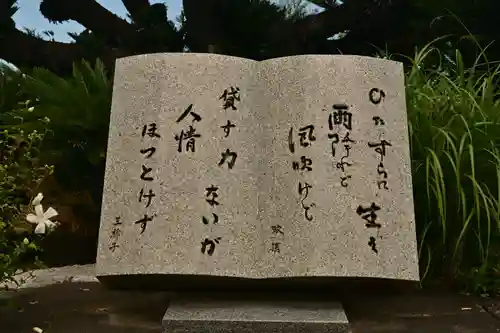 ひたすらに生き
雨ふれど
風吹けど
貸す力ないが
人情
ほつとけず